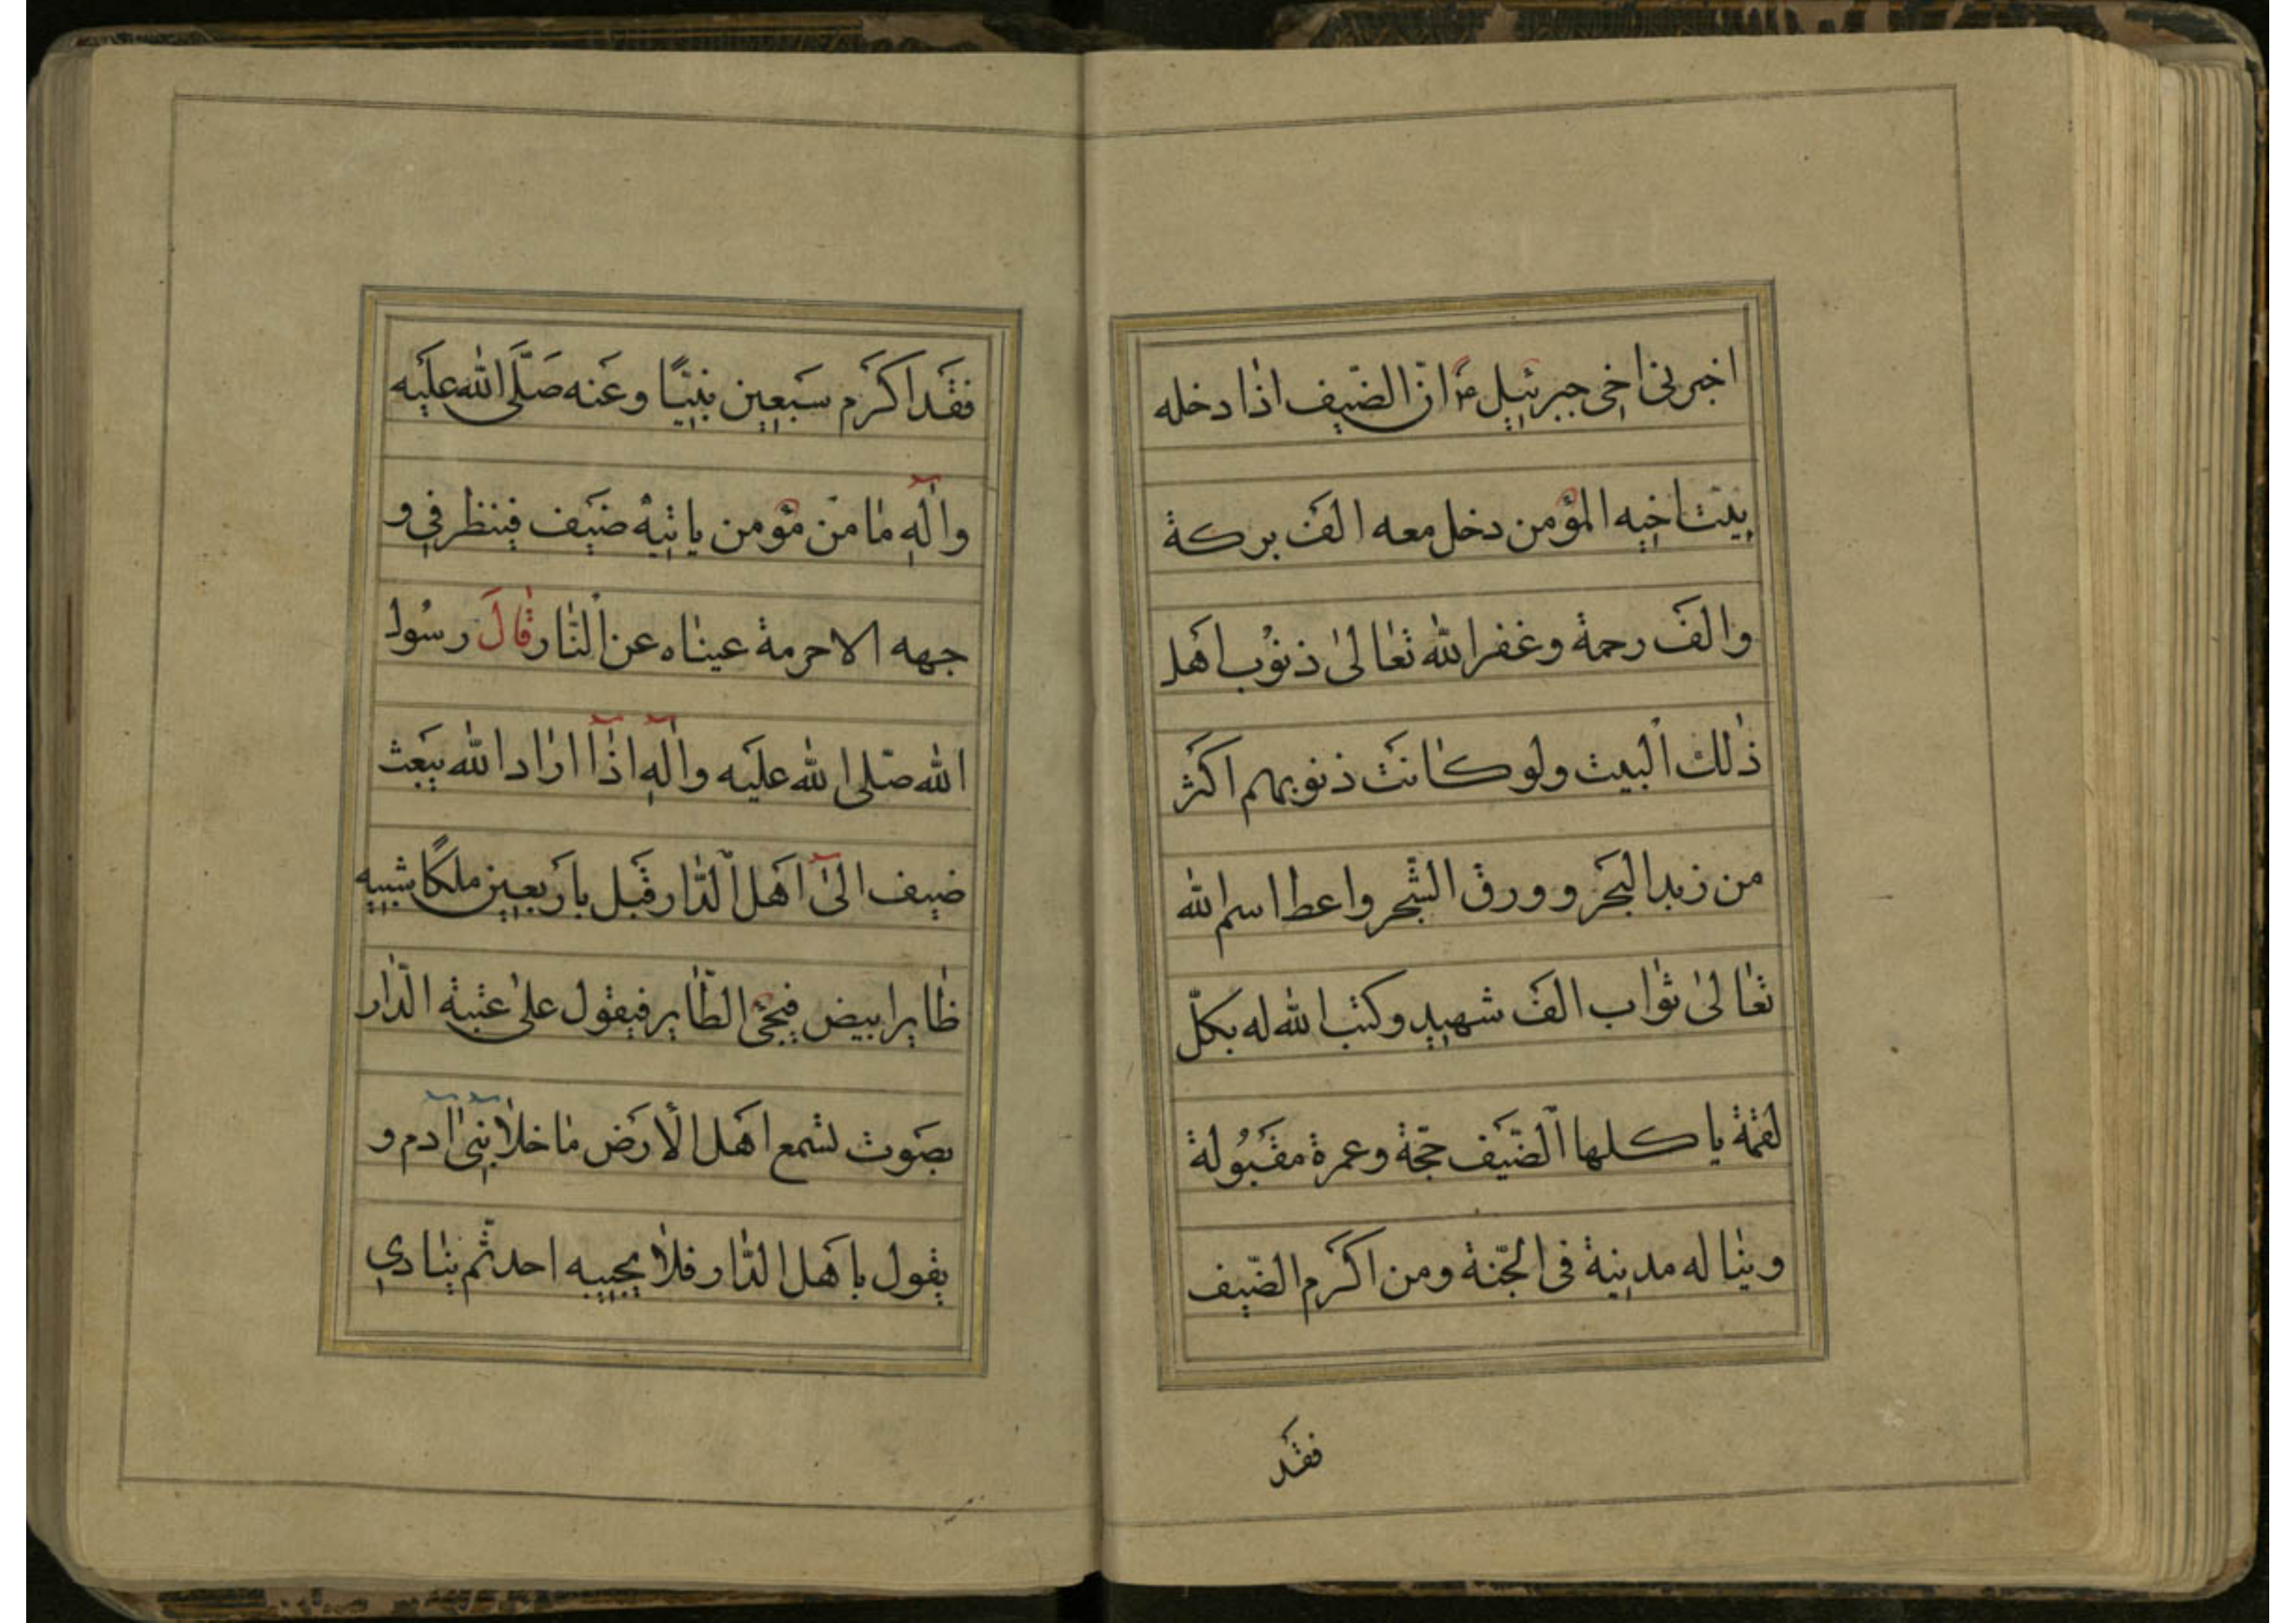 اخبرنى اخى جبرئيل ان الضّيف اذا دخله
بيت اخيه المؤمن دخل معه الف بركة
والف رحمة وغفر الله تعالى ذنوب اهل
ذلك البيت ولو كانت ذنوبهم اكثر
من زبد البحر وورق الشّجر واعطا اسم الله
تعالى ثواب الف شهيد وكتب الله له بكلّ
لقمة ياكلها الضّيف حجّة وعمرة مقبولة
وبنا له مدينة فى الجنّة ومن اكرم الضّيف
فقد
فقد اكرم سبعين نبيّا وعنه صلّى الله عليه
واله ما من مؤمن ياتيه ضيف فينظر فى و
جهه الا حرمة عيناه عن النّار قال رسول
الله صلى الله عليه واله اذا اراد الله يبعث
ضيف الى اهل الدّار قبل باربعين ملكا شبيه
طاير ابيض فيجئ الطّاير فيقول على عتبة الدّار
بصوت تسمع اهل الأرض ما خلا بنى ادم و
يقول يا هل الدّار فلا يجيبه احد ثم ينادي